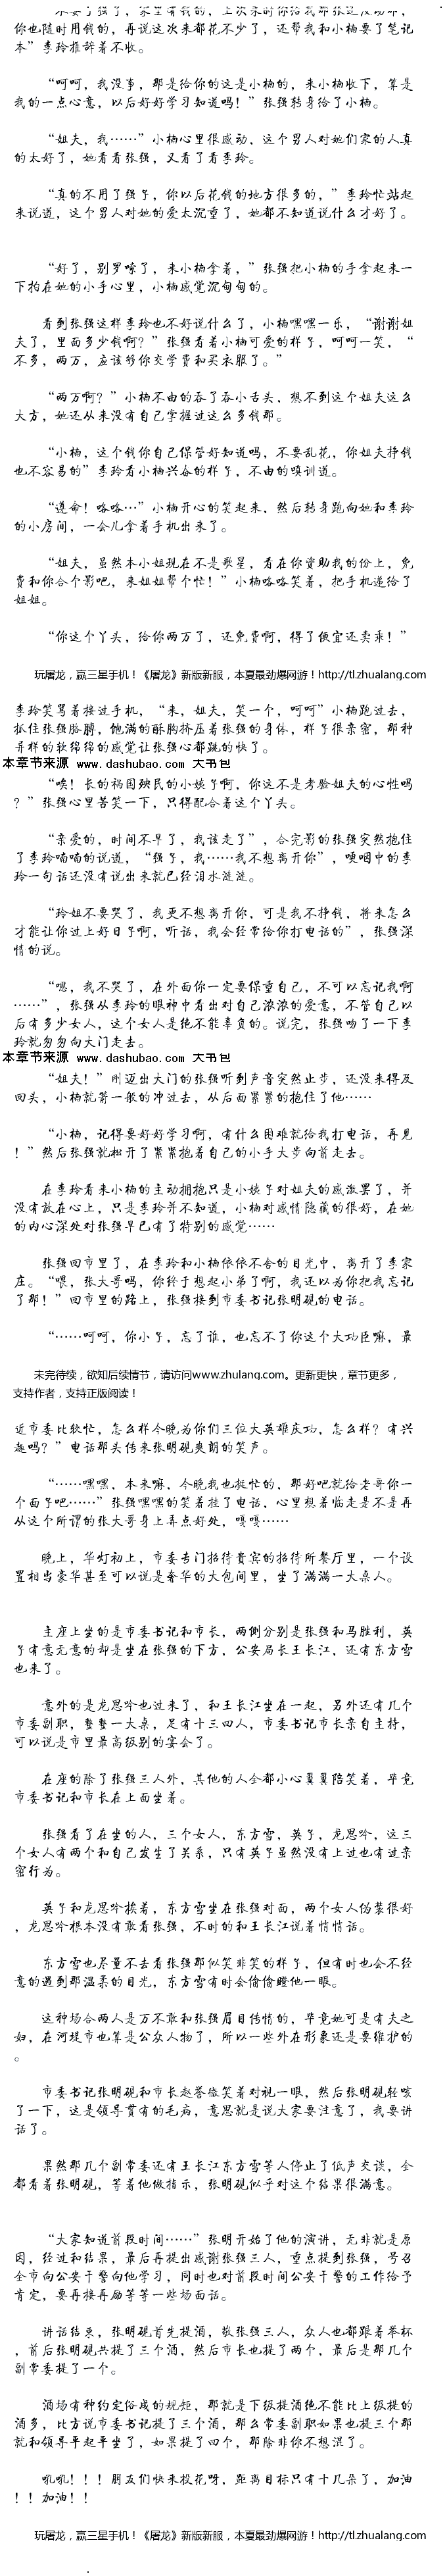 你也随时用钱的，再说这次来都花不少了，还帮我和小楠要了笔记
本”李玲推辞着不收。
“呵呵，我没事，那是给你的这是小楠的，来小楠收下，算是
我的一点心意，以后好好学习知道吗！”张强转身给了小楠。
“姐夫，我……”小楠心里很感动，这个男人对她们家的人真
的太好了，她看看张强，又看了看李玲。
“真的不用了强子，你以后花钱的地方很多的，”李玲忙站起
来说道，这个男人对她的爱太沉重了，她都不知道说什么才好了。
“好了，别罗嗦了，来小楠拿着，”张强把小楠的手拿起来一
下拍在她的小手心里，小楠感觉沉甸甸的。
看到张强这样李玲也不好说什么了，小楠嘿嘿一乐，“谢谢姐
夫了，里面多少钱啊？”张强看着小楠可爱的样子，呵呵一笑，“
不多，两万，应该够你交学费和买衣服了。”
“两万啊？”小楠不由的吞了吞小舌头，想不到这个姐夫这么
大方，她还从来没有自己掌握过这么多钱那。
“小楠，这个钱你自己保管好知道吗，不要乱花，你姐夫挣钱
也不容易的”李玲看小楠兴奋的样子，不由的嗔训道。
“遵命！咯咯…”小楠开心的笑起来，然后转身跑向她和李玲
的小房间，一会儿拿着手机出来了。
“姐夫，虽然本小姐现在不是歌星，看在你资助我的份上，免
费和你合个影吧，来姐姐帮个忙！”小楠咯咯笑着，把手机递给了
姐姐。
“你这个丫头，给你两万了，还免费啊，得了便宜还卖乖！”
玩屠龙，赢三星手机！《屠龙》新版新服，本夏最劲爆网游！http://tl.zhualang.com
李玲笑骂着接过手机，“来，姐夫，笑一个，呵呵”小楠跑过去，
抓住张强胳膊，饱满的酥胸挤压着张强的身体，样子很亲密，那种
异样的软绵绵的感觉让张强心都跳的快了。
本章节来源 www.dashubao.com 大书包
“唉！长的祸国殃民的小姨子啊，你这不是考验姐夫的心性吗
？”张强心里苦笑一下，只得配合着这个丫头。
“亲爱的，时间不早了，我该走了”，合完影的张强突然抱住
了李玲喃喃的说道，“强子，我……我不想离开你”，哽咽中的李
玲一句话还没有说出来就已经泪水涟涟。
“玲姐不要哭了，我更不想离开你，可是我不挣钱，将来怎么
才能让你过上好日子啊，听话，我会经常给你打电话的”，张强深
情的说。
“嗯，我不哭了，在外面你一定要保重自己，不可以忘记我啊
……”，张强从李玲的眼神中看出对自己浓浓的爱意，不管自己以
后有多少女人，这个女人是绝不能辜负的。说完，张强吻了一下李
玲就匆匆向大门走去。
本章节来源 www.dashubao.com 大书包
“姐夫！”刚迈出大门的张强听到声音突然止步，还没来得及
回头，小楠就箭一般的冲过去，从后面紧紧的抱住了他……
“小楠，记得要好好学习啊，有什么困难就给我打电话，再见
！”然后张强就松开了紧紧抱着自己的小手大步向前走去。
在李玲看来小楠的主动拥抱只是小姨子对姐夫的感激罢了，并
没有放在心上，只是李玲并不知道，小楠对感情隐藏的很好，在她
的内心深处对张强早已有了特别的感觉……
张强回市里了，在李玲和小楠依依不舍的目光中，离开了李家
庄。“喂，张大哥吗，你终于想起小弟了啊，我还以为你把我忘记
了那！”回市里的路上，张强接到市委书记张明砚的电话。
“……呵呵，你小子，忘了谁，也忘不了你这个大功臣嘛，最
未完待续，欲知后续情节，请访问www.zhulang.com。更新更快，章节更多，
支持作者，支持正版阅读！
近市委比较忙，怎么样今晚为你们三位大英雄庆功，怎么样？有兴
趣吗？”电话那头传来张明砚爽朗的笑声。
“……嘿嘿，本来嘛，今晚我也挺忙的，那好吧就给老哥你一
个面子吧……”张强嘿嘿的笑着挂了电话，心里想着临走是不是再
从这个所谓的张大哥身上弄点好处，嘎嘎……
晚上，华灯初上，市委专门招待贵宾的招待所餐厅里，一个设
置相当豪华甚至可以说是奢华的大包间里，坐了满满一大桌人。
主座上坐的是市委书记和市长，两侧分别是张强和马胜利，英
子有意无意的却是坐在张强的下方，公安局长王长江，还有东方雪
也来了。
意外的是龙思吟也过来了，和王长江坐在一起，另外还有几个
市委副职，整整一大桌，足有十三四人，市委书记市长亲自主持，
可以说是市里最高级别的宴会了。
在座的除了张强三人外，其他的人全都小心翼翼陪笑着，毕竟
市委书记和市长在上面坐着。
张强看了在坐的人，三个女人，东方雪，英子，龙思吟，这三
个女人有两个和自己发生了关系，只有英子虽然没有上过也有过亲
密行为。
英子和龙思吟挨着，东方雪坐在张强对面，两个女人伪装很好
，龙思吟根本没有敢看张强，不时的和王长江说着悄悄话。
东方雪也尽量不去看张强那似笑非笑的样子，但有时也会不经
意的遇到那温柔的目光，东方雪有时会偷偷瞪他一眼。
这种场合两人是万不敢和张强眉目传情的，毕竟她可是有夫之
妇，在河堤市也算是公众人物了，所以一些外在形象还是要维护的
。
市委书记张明砚和市长赵誉微笑着对视一眼，然后张明砚轻咳
了一下，这是领导贯有的毛病，意思就是说大家要注意了，我要讲
话了。
果然那几个副常委还有王长江东方雪等人停止了低声交谈，全
都看着张明砚，等着他做指示，张明砚似乎对这个结果很满意。
“大家知道前段时间……”张明开始了他的演讲，无非就是原
因，经过和结果，最后再提出感谢张强三人，重点提到张强，号召
全市向公安干警向他学习，同时也对前段时间公安干警的工作给予
肯定，要再接再励等等一些场面话。
讲话结束，张明砚首先提酒，敬张强三人，众人也都跟着举杯
，前后张明砚共提了三个酒，然后市长也提了两个，最后是那几个
副常委提了一个。
酒场有种约定俗成的规矩，那就是下级提酒绝不能比上级提的
酒多，比方说市委书记提了三个酒，那么常委副职如果也提三个那
就和领导平起平坐了，如果提了四个，那除非你不想混了。
吼吼！！！朋友们快来投花呀，距离目标只有十几朵了，加油
！！加油！！
玩屠龙，赢三星手机！《屠龙》新版新服，本夏最劲爆网游！http://tl.zhualang.com